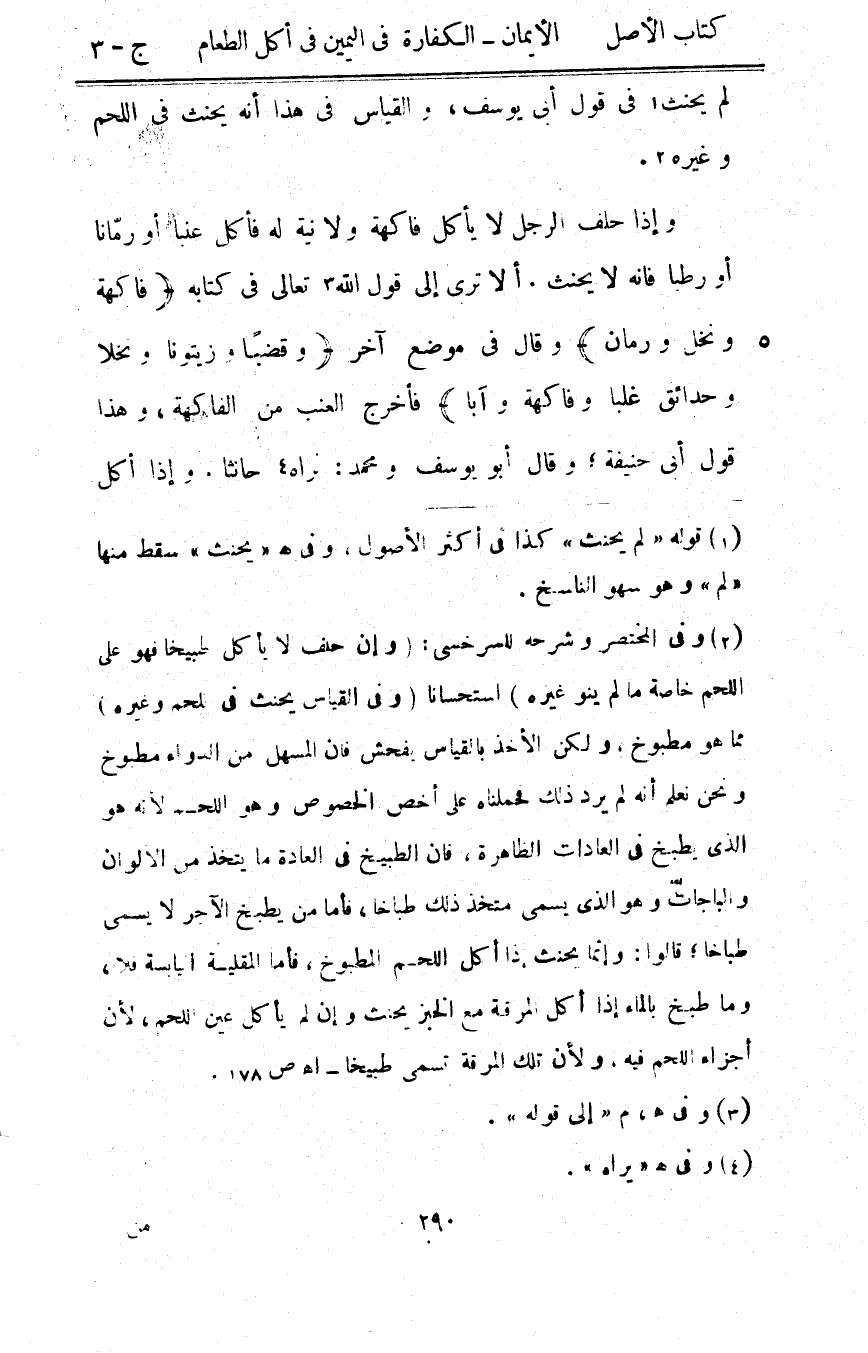 كتاب الأصل الأيمان - الكفارة فى اليمين فى أكل الطعام ج - ٣
لم يحنث١ فى قول أبى يوسف، و القياس فى هذا أنه يحنث فى اللحم
و غيره٢ .
و إذا حلف الرجل لا يأكل فاكهة ولا نية له فأكل عنبا أو رمّانا
أو رطبا فانه لا يحنث . ألا ترى إلى قول الله٣ تعالى فى كتابه ﴿ فاكهة
٥ و نخل و رمان ﴾ و قال فى موضع آخر ﴿ و قضبًا و زيتونا و نخلا
و حدائق غلبا و فاكهة و آبا ﴾ فأخرج العنب من الفاكهة، و هذا
قول أبى حنيفة ؛ و قال أبو يوسف و محمد: نراه٤ حانثا . و إذا أكل
(١) قوله « لم يحنث » كذا فى أكثر الأصول ، و فى ه « يحنث » سقط منها
« لم » و هو سهو الناسخ .
(٢) و فى المختصر و شرحه للسرخسى: ( و إن حلف لا يأكل طبيخا فهو على
اللحم خاصة ما لم ينو غيره ) استحسانا ( و فى القياس يحنث فى اللحم وغيره )
مما هو مطبوخ ، و لكن الأخذ بالقياس يفحش فان المسهل من الدواء مطبوخ
و نحن نعلم أنه لم يرد ذلك فحملناه على أخص الخصوص و هو اللحم لأنه هو
الذى يطبخ فى العادات الظاهرة ، فان الطبيخ فى العادة ما يتخذ من الالوان
و الباجات و هو الذى يسمى متخذ ذلك طباخا ، فأما من يطبخ الآجر لا يسمى
طباخا ؛ قالوا : و إنما يحنث إذا أكل اللحم المطبوخ ، فأما المقلية اليابسة فلا ،
و ما طبخ بالماء إذا أكل المرقة مع الخبز يحنث و إن لم يأكل عين اللحم ، لأن
أجزاء اللحم فيه ، و لأن تلك المرقة تسمى طبيخا - اه ص ١٧٨ .
(٣) و فى ه ، م « إلى قوله » .
(٤) و فى ه « يراه » .
٢٩٠ من